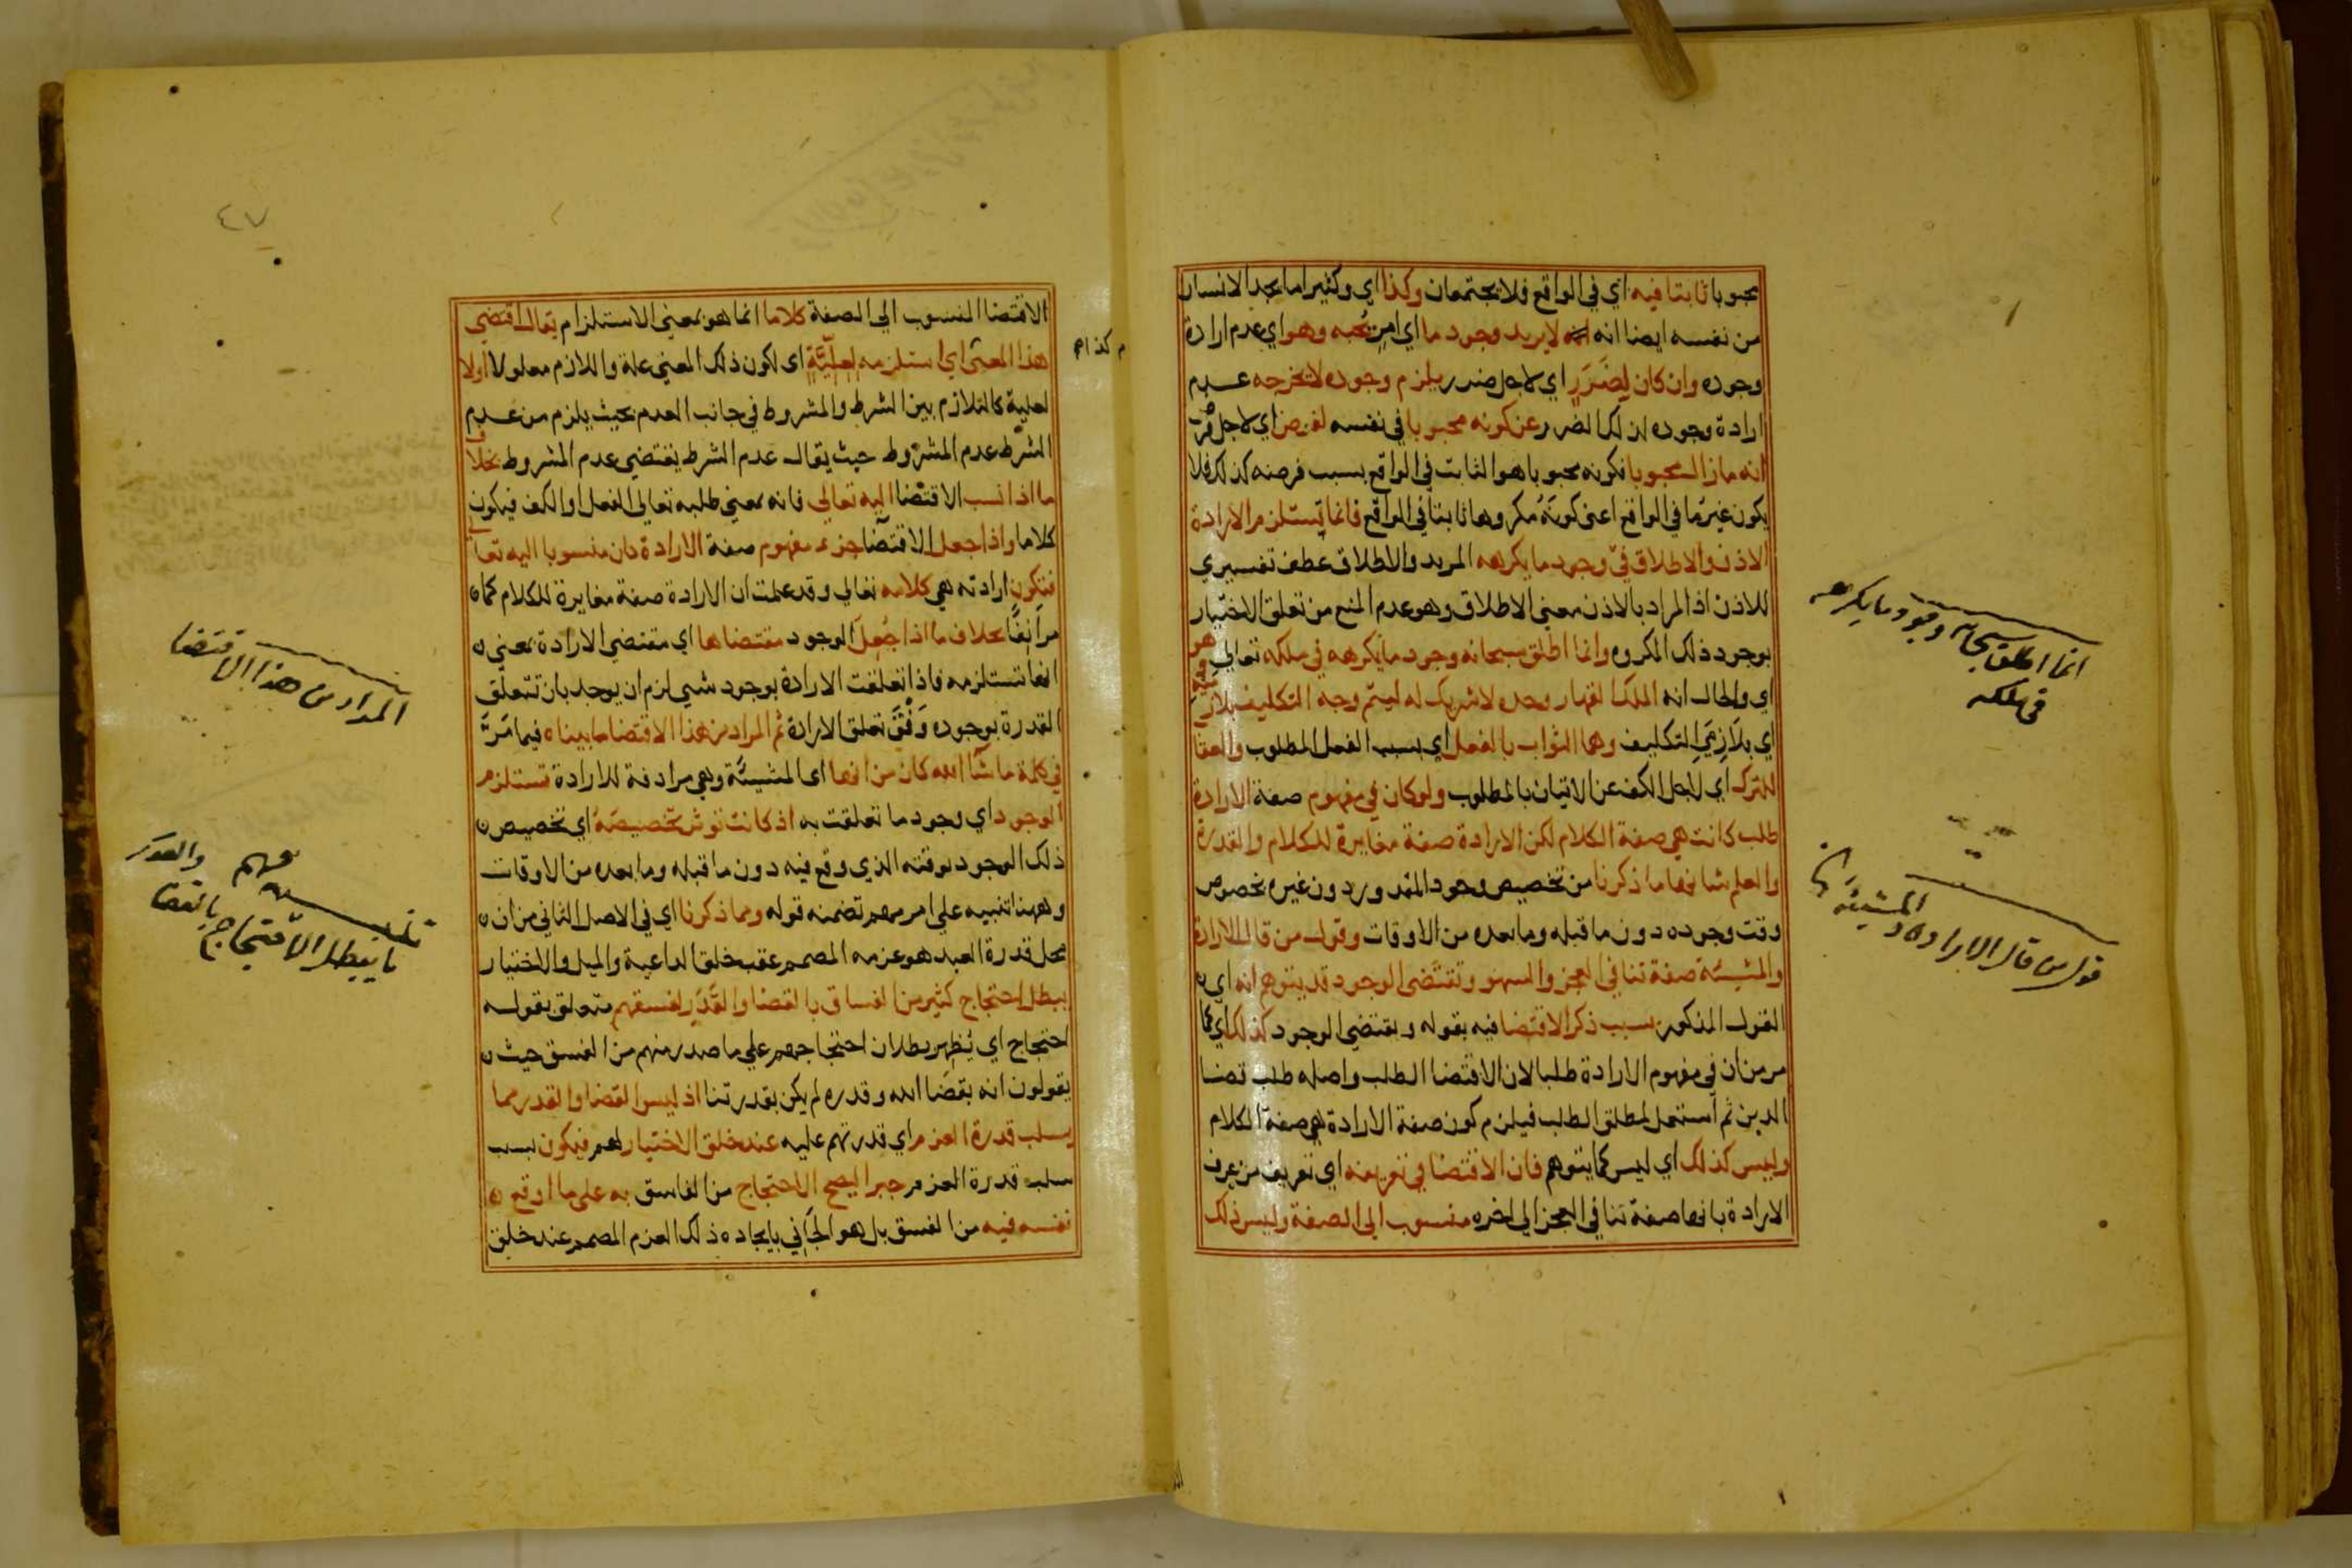 محبوبا ثابتا فيه اي في الواقع فلا يجتمعان وكذا اي وكثيرا ما يجد الانسان
من نفسه ايضا انه لا يريد وجود ما اي امر يحبه وهو اي عدم ارادة
وجوده وان كان لِضَرَرٍ اي لاجل ضرر يلزم وجوده لا يخرجه عدم
ارادة وجوده لذلك الضرر عن كونه محبوبا في نفسه لفرض اي لاجل فرض
انه ما زال محبوبا فكونه محبوبا هو الثابت في الواقع بسبب فرضه كذلك فلا
يكون غيرها في الواقع اعني كونَهُ مكروها ثابتا في الواقع فانما يستلزم الارادة
الاذن والاطلاق في وجود ما يكرهه المريد والاطلاق عطف تفسيري
للاذن اذ المراد بالاذن معنى الاطلاق وهو عدم المنع من تعلق الاختيار
بوجود ذلك المكروه وانما اطلق سبحانه وجود ما يكرهه في ملكه تعالى وهو
اي والحال انه الملك القهار وحده لا شريك له ليتم وجه التكليف بلازميه
اي بلازِمَيِ التكليف وهما الثواب بالفعل اي بسبب الفعل المطلوب والعقا
للترك اي لاجل الكف عن الاتيان بالمطلوب ولو كان في مفهوم صفة الارادة
طلب كانت هي صفة الكلام لكن الارادة صفة مغايرة للكلام والقدرة
والعلم شانها ما ذكرنا من تخصيص وجود المقدور دون غيره بخصوص
وقت وجوده دون ما قبله وما بعده من الاوقات وقول من قال الارادة
والمشيئة صفة تنافي العجز والسهو وتقتضي الوجود قد يتوهم انه اي ن
القول المذكور بسبب ذكر الاقتضا فيه بقوله ويقتضي الوجود كذلك اي كما
مر من ان في مفهوم الارادة طلبا لان الاقتضا الطلب واصله طلب قضا
الدين ثم استعمل لمطلق الطلب فيلزم كون صفة الارادة هي صفة الكلام
وليس كذلك اي ليس كما يتوهم فان الاقتضا في تعريفه اي تعريف من عرف
الارادة بانها صفة تنافي العجز الى اخره منسوب الى الصفة وليس ذلك
انما اطلق سبحانه وجود ما يكرهه
في ملكه
قول من قال الارادة والمشيئة
٤٧
الاقتضا المنسوب الى الصفة كلاما انما هو بمعنى الاستلزام يقال اقتضي
هذا المعنى اي استلزمه لعِلِّيَّةٍ اي لكون ذلك المعنى علة واللازم معلولا اولا
لعلية كالتلازم بين الشرط والمشروط في جانب العدم بحيث يلزم من عدم
الشرط عدم المشروط حيث يقال عدم الشرط يقتضي عدم المشروط بخلاف
ما اذا نسب الاقتضا اليه تعالى فانه بمعنى طلبه تعالى الفعل او الكف فيكون
كلاما واذا جعل الاقتضا جزء مفهوم صفة الارادة كان منسوبا اليه تعالى
فتكون ارادته هي كلامه تعالى وقد علمت ان الارادة صفة مغايرة للكلام كما ن
مر انِفًا بخلاف ما اذا جُعِلَ الوجود مقتضاها اي مقتضي الارادة بمعنى ن
انها تستلزمه فاذا تعلقت الارادة بوجود شي لزم ان يوجد بان تتعلق
القدرة بوجوده وَفْقَ تعلق الارادة ثم المراد من هذا الاقتضا ما بيناه فيما مَرَّ
في كلمة ما شا الله كان من انها اي المشيئة وهي مرادفة للارادة تستلزم
الوجود اي وجود ما تعلقت به اذ كانت توثر تخصيصَهُ اي تخصيص ن
ذلك الوجود بوقته الذي وقع فيه دون ما قبله وما بعده من الاوقات
وههنا تنبيه على امر مهم تضمنه قوله ومما ذكرنا اي في الاصل الثاني من ان ن
محل قدرة العبد هو عزمه المصمم عقب خلق الداعية والميل والاختيار
يبطل احتجاج كثير من الفساق بالقضا والقَدَرِ لفسقهم متعلق بقوله
احتجاج اي يُظهر بطلان احتجاجهم على ما صدر منهم من الفسق حيث ن
يقولون انه بقضا الله وقدره لم يكن بقدرتنا اذ ليس القضا والقدر مما
يسلب قدرة العزم اي قدرتهم عليه عند خلق الاختيار لهم فيكون بسبب
سلب قدرة العزم جبرا ليصح الاحتجاج من الفاسق به على ما اوقع ن
نفسه فيه من الفسق بل هو الجَاني بايجاده ذلك العزم المصمم عند خلق
المراد من هذا الاقتضا
تنبيه مهم
ما يبطل الاحتجاج بالقضا
والقدر